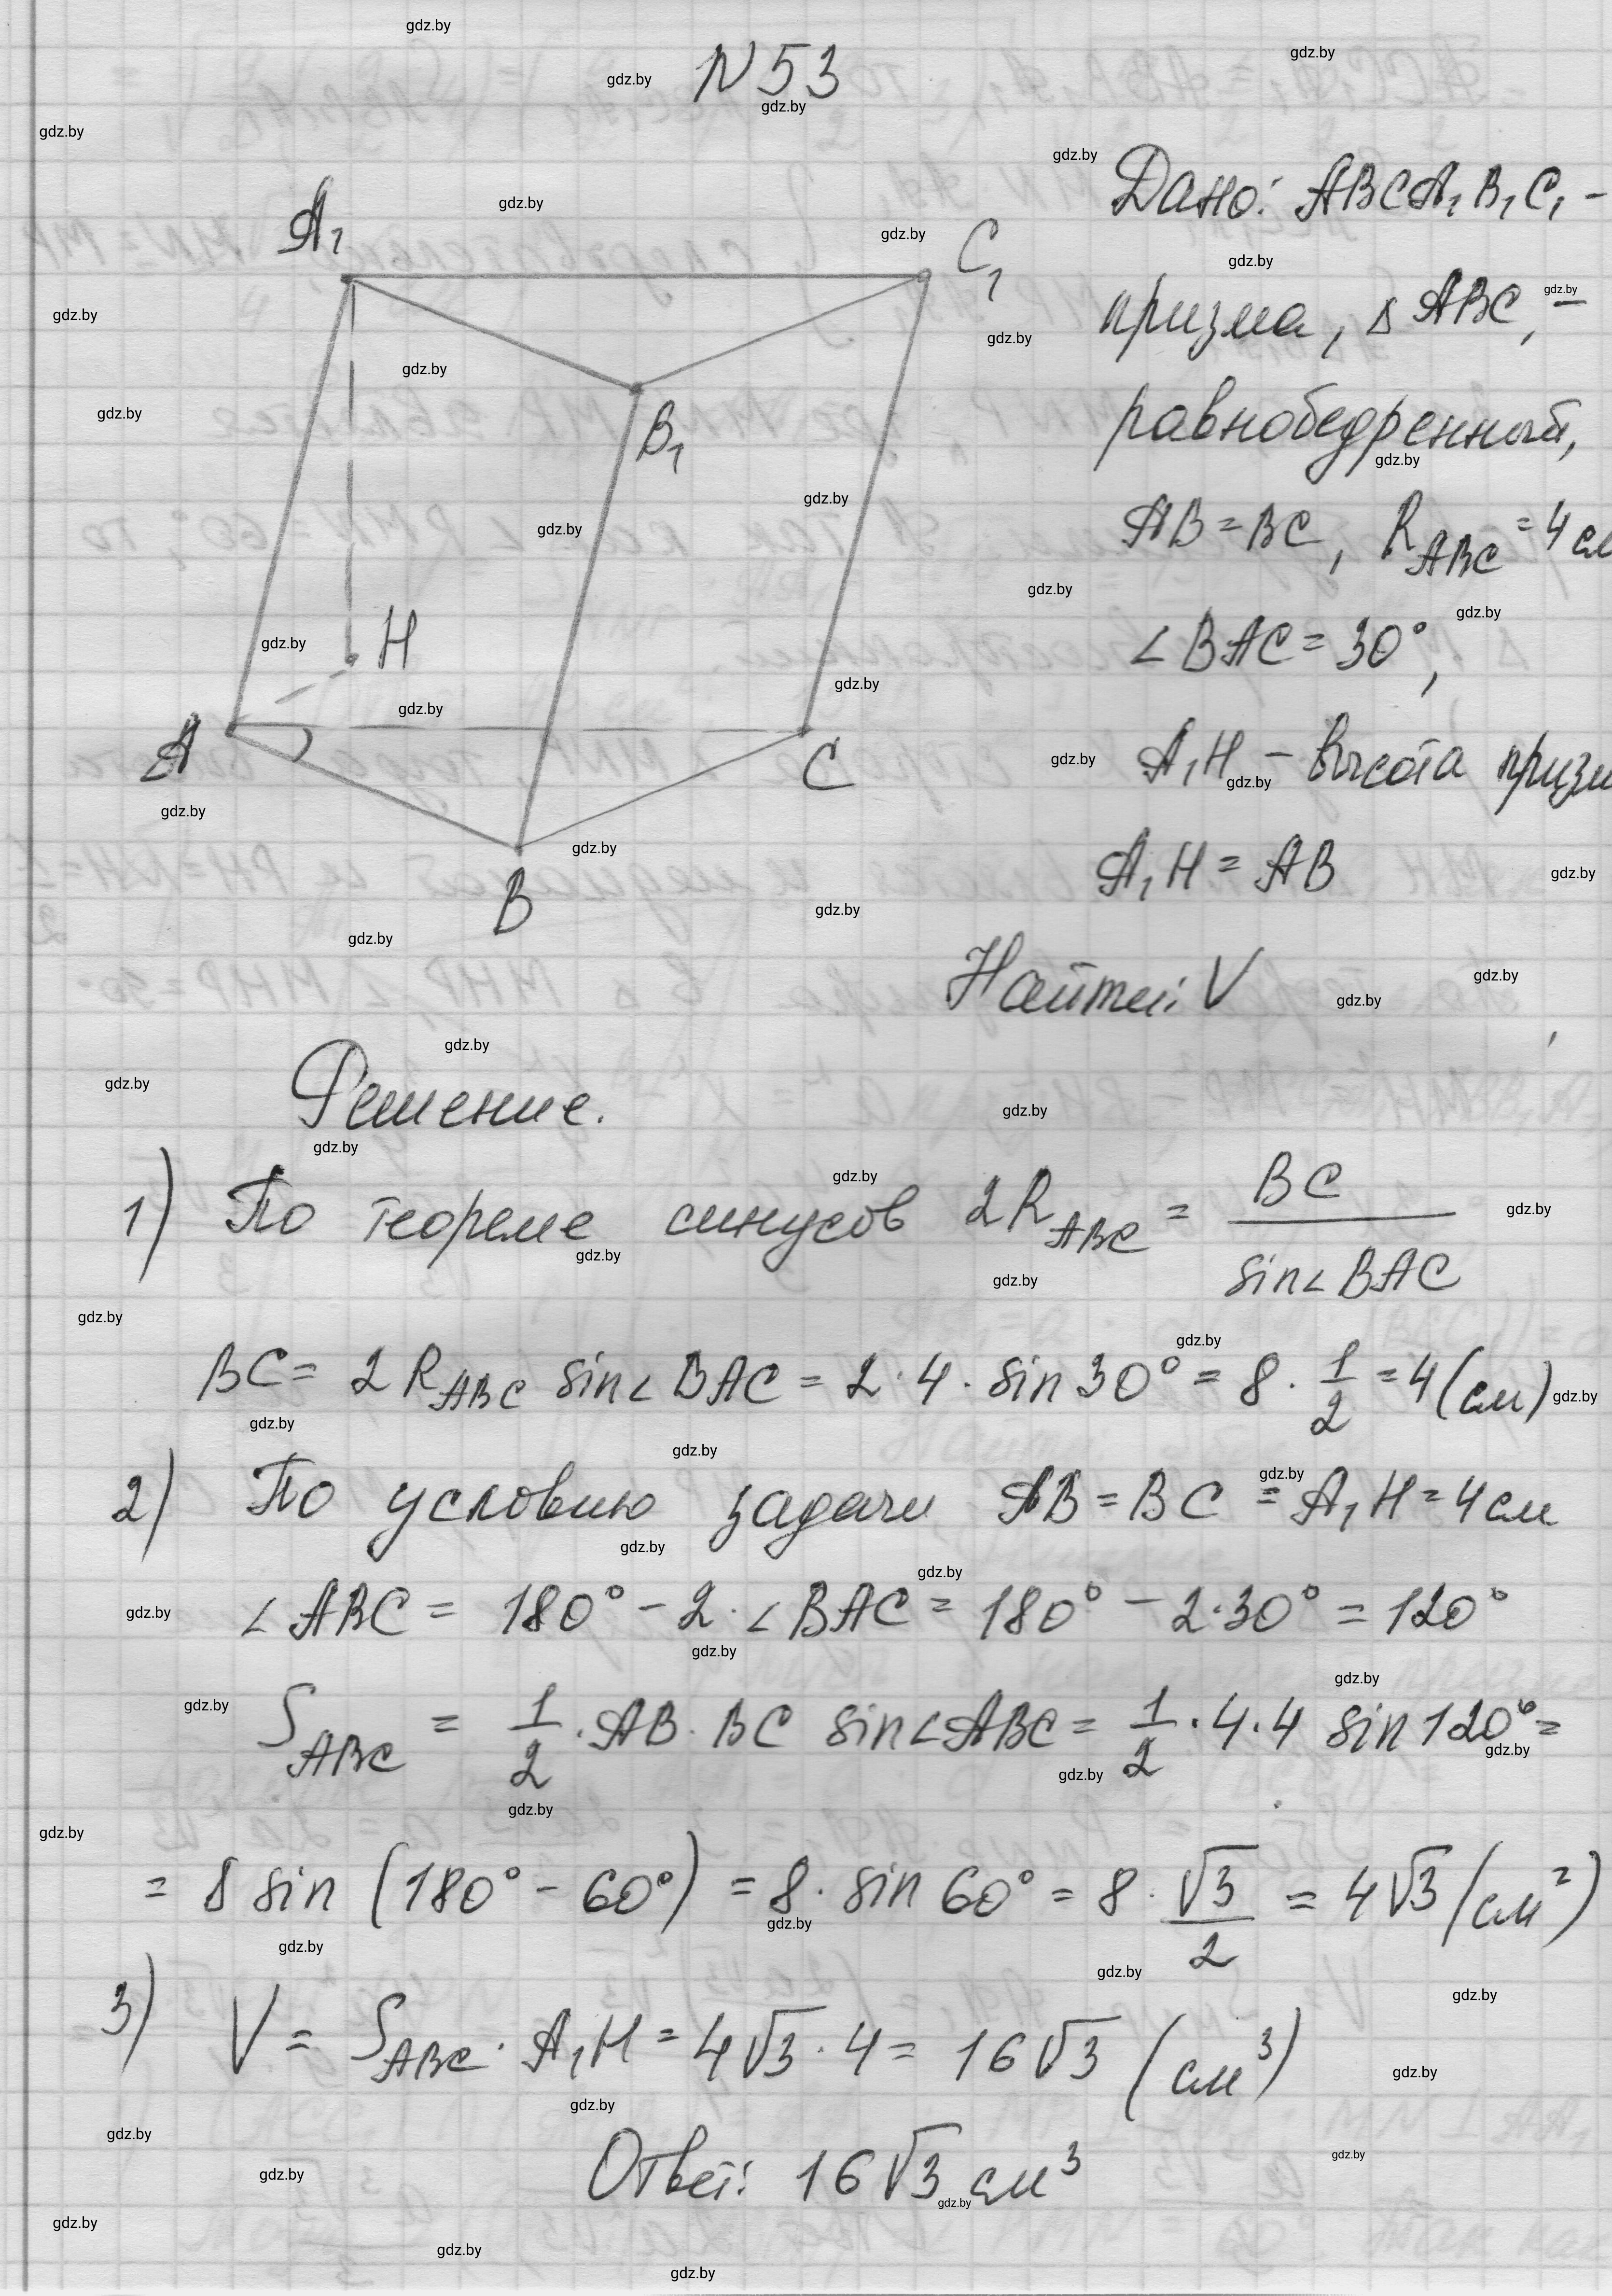 N 53
Дано: ABCA₁B₁C₁ –
призма, Δ ABC, –
равнобедренный,
AB = BC, R_ABC = 4 см
∠BAC = 30°,
A₁H – высота призм
A₁H = AB
Найти: V
A₁
C₁
B₁
H
A
C
B
Решение.
1) По теореме синусов 2R_ABC = BC / sin∠BAC
BC = 2 R_ABC sin∠BAC = 2 · 4 · sin 30° = 8 · 1/2 = 4 (см)
2) По условию задачи AB = BC = A₁H = 4 см
∠ABC = 180° – 2 · ∠BAC = 180° – 2 · 30° = 120°
S_ABC = 1/2 · AB · BC sin∠ABC = 1/2 · 4 · 4 sin 120° =
= 8 sin (180° – 60°) = 8 · sin 60° = 8 · √3/2 = 4√3 (см²)
3) V = S_ABC · A₁H = 4√3 · 4 = 16√3 (см³)
Ответ: 16√3 см³
gdz.by